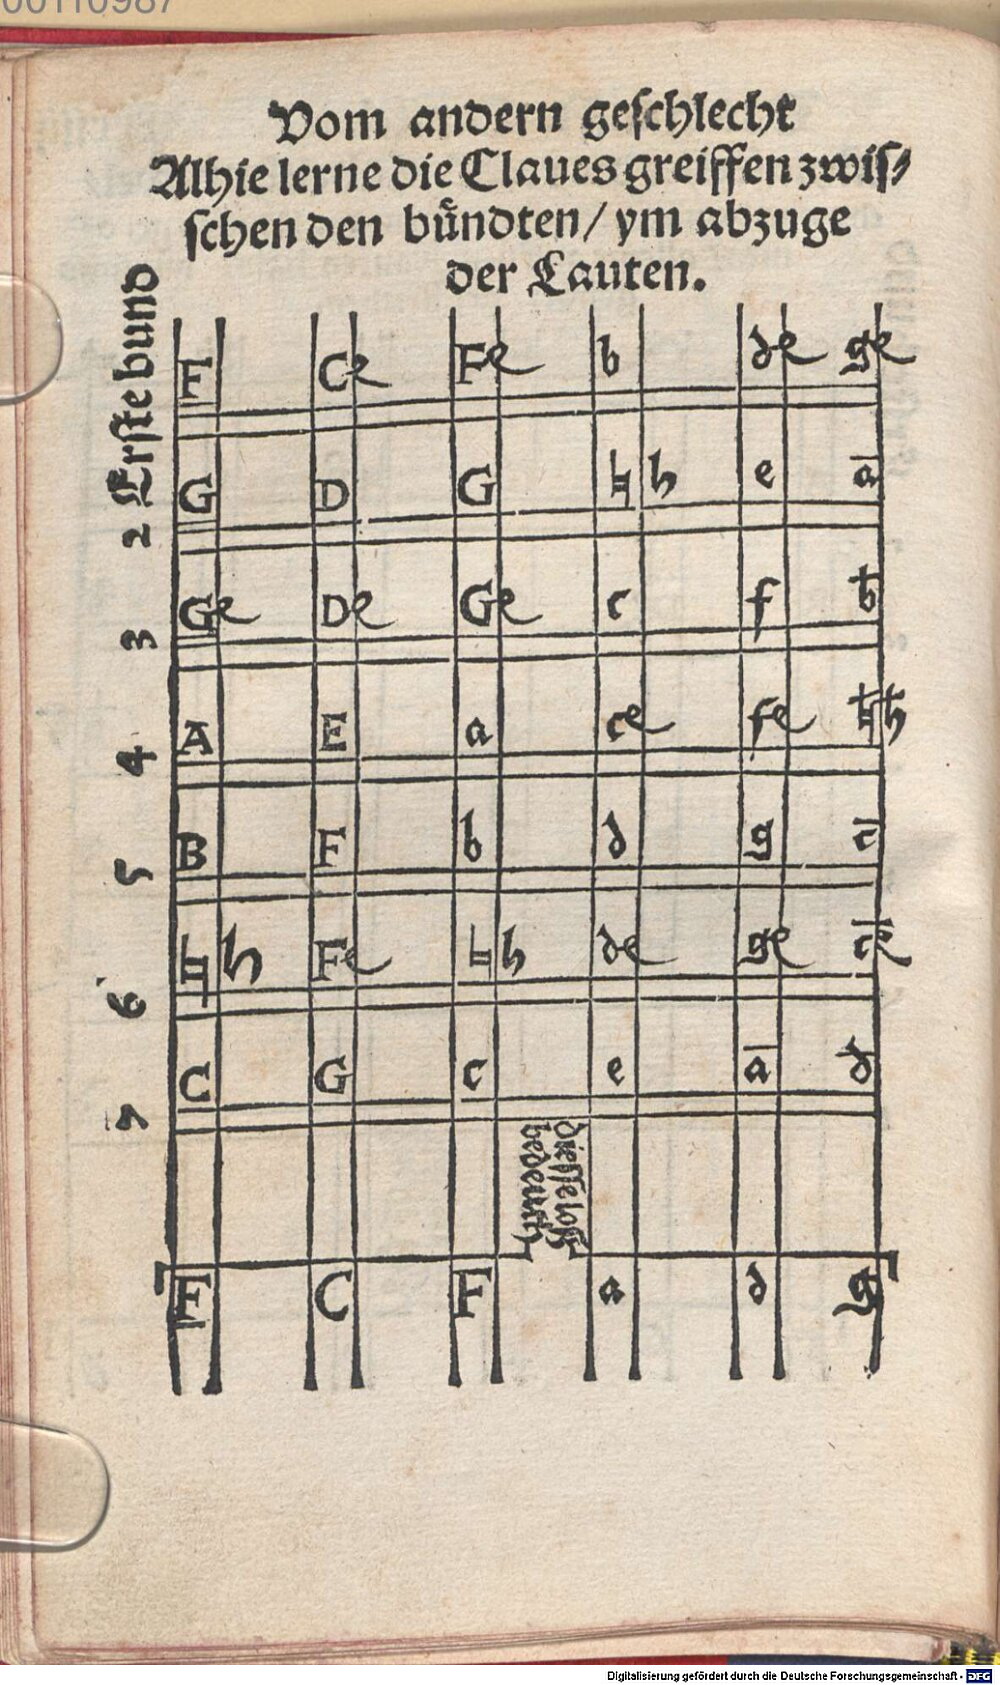 00110987
Vom andern geſchlecht
Alhie lerne die Claues greiffen zwiſ⸗
ſchen den bündten / ym abzuge
der Lauten.
Erſte bund
F Ce Fe b de ge
2
G D G ♮ h e a̅
3
Ge De Ge c f b̅
4
A E a ce fe ♮̅ h̅
5
B F b d g c̅
6
♮ h Fe ♮ h de ge c̅e
7
C G c e a̅ d
F C F a d g
Digitalisierung gefördert durch die Deutsche Forschungsgemeinschaft - DFG